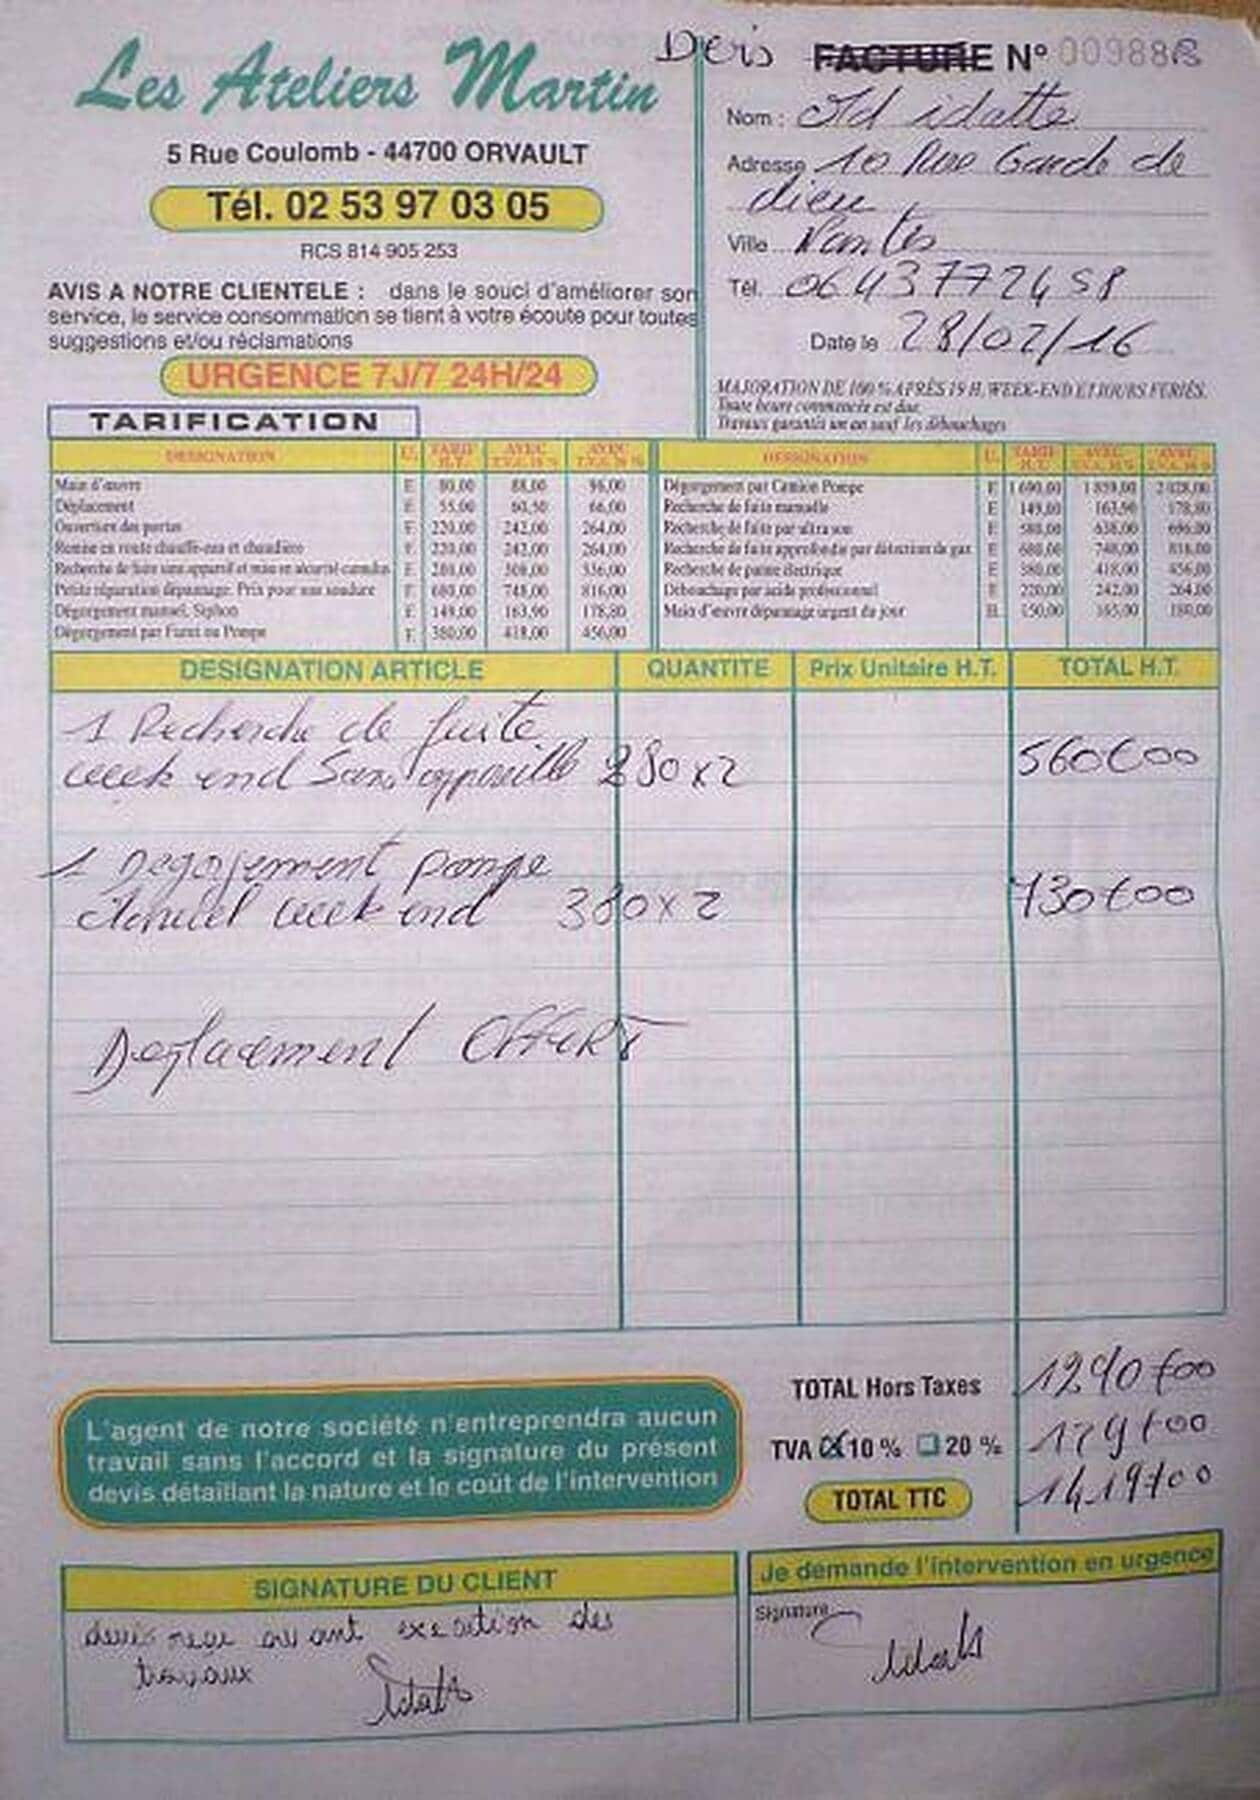 Les Ateliers Martin
5 Rue Coulomb - 44700 ORVAULT
Tél. 02 53 97 03 05
RCS 814 905 253
AVIS A NOTRE CLIENTELE : dans le souci d'améliorer son
service, le service consommation se tient à votre écoute pour toutes
suggestions et/ou réclamations
URGENCE 7J/7 24H/24
Devis FACTURE N° 00988B
Nom : idatte
Adresse 10 Rue Garde de
dieu
Ville Nantes
Tél. 0643772458
Date le 28/02/16
MAJORATION DE 100 % APRÈS 19 H, WEEK-END ET JOURS FERIÉS.
Toute heure commencée est due.
Travaux garantis un an sauf les débouchages
TARIFICATION
DESIGNATION U. TARIF H.T. AVEC T.V.A. 10 % AVEC T.V.A. 20 %
Main d'œuvre F 80,00 88,00 96,00
Déplacement F 55,00 60,50 66,00
Ouverture des portes F 220,00 242,00 264,00
Remise en route chauffe-eau et chaudière F 220,00 242,00 264,00
Recherche de fuite sans appareil et mise en sécurité cumulus F 280,00 308,00 336,00
Petite réparation dépannage. Prix pour une soudure F 680,00 748,00 816,00
Dégorgement manuel, Siphon F 149,00 163,90 178,80
Dégorgement par Furet ou Pompe F 380,00 418,00 456,00
DESIGNATION U. TARIF H.T. AVEC T.V.A. 10 % AVEC T.V.A. 20 %
Dégorgement par Camion Pompe F 1 690,00 1 859,00 2 028,00
Recherche de fuite manuelle F 149,00 163,90 178,80
Recherche de fuite par ultra son F 580,00 638,00 696,00
Recherche de fuite approfondie par détection de gaz F 680,00 748,00 816,00
Recherche de panne électrique F 380,00 418,00 456,00
Débouchage par acide professionnel F 220,00 242,00 264,00
Main d'œuvre dépannage urgent du jour H 150,00 165,00 180,00
DESIGNATION ARTICLE QUANTITE Prix Unitaire H.T. TOTAL H.T.
1 Recherche de fuite
week end Sans appareille 280x2 560€00
1 Degorjement pompe
week end 380x2 730€00
Deplacement OFFERT
L'agent de notre société n'entreprendra aucun
travail sans l'accord et la signature du présent
devis détaillant la nature et le coût de l'intervention
TOTAL Hors Taxes 1290€00
TVA 10 % 20 % 129€00
TOTAL TTC 1419€00
SIGNATURE DU CLIENT
devis reçu avant execution des
travaux
Je demande l'intervention en urgence
Signature